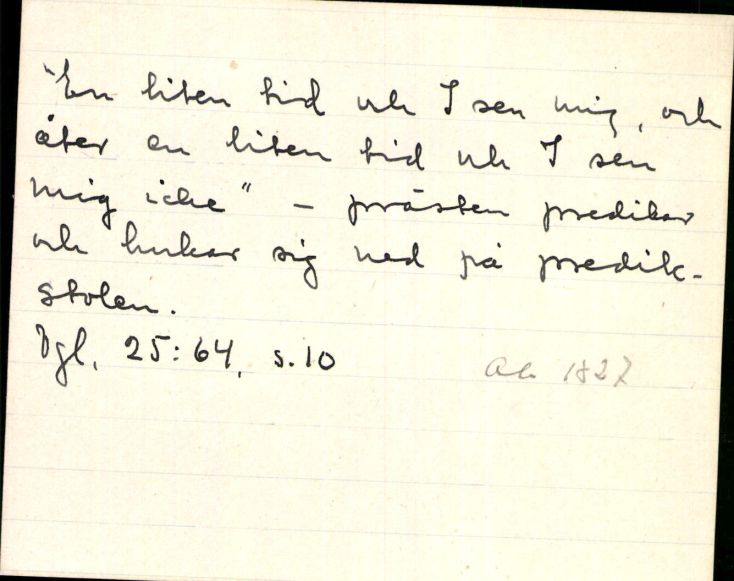 "En liten tid och I sen mig, och
åter en liten tid och I sen
mig icke" – prästen predikar
och hukar sig ned på predik-
stolen.
Vgl, 25:64, s.10
Aa 1827